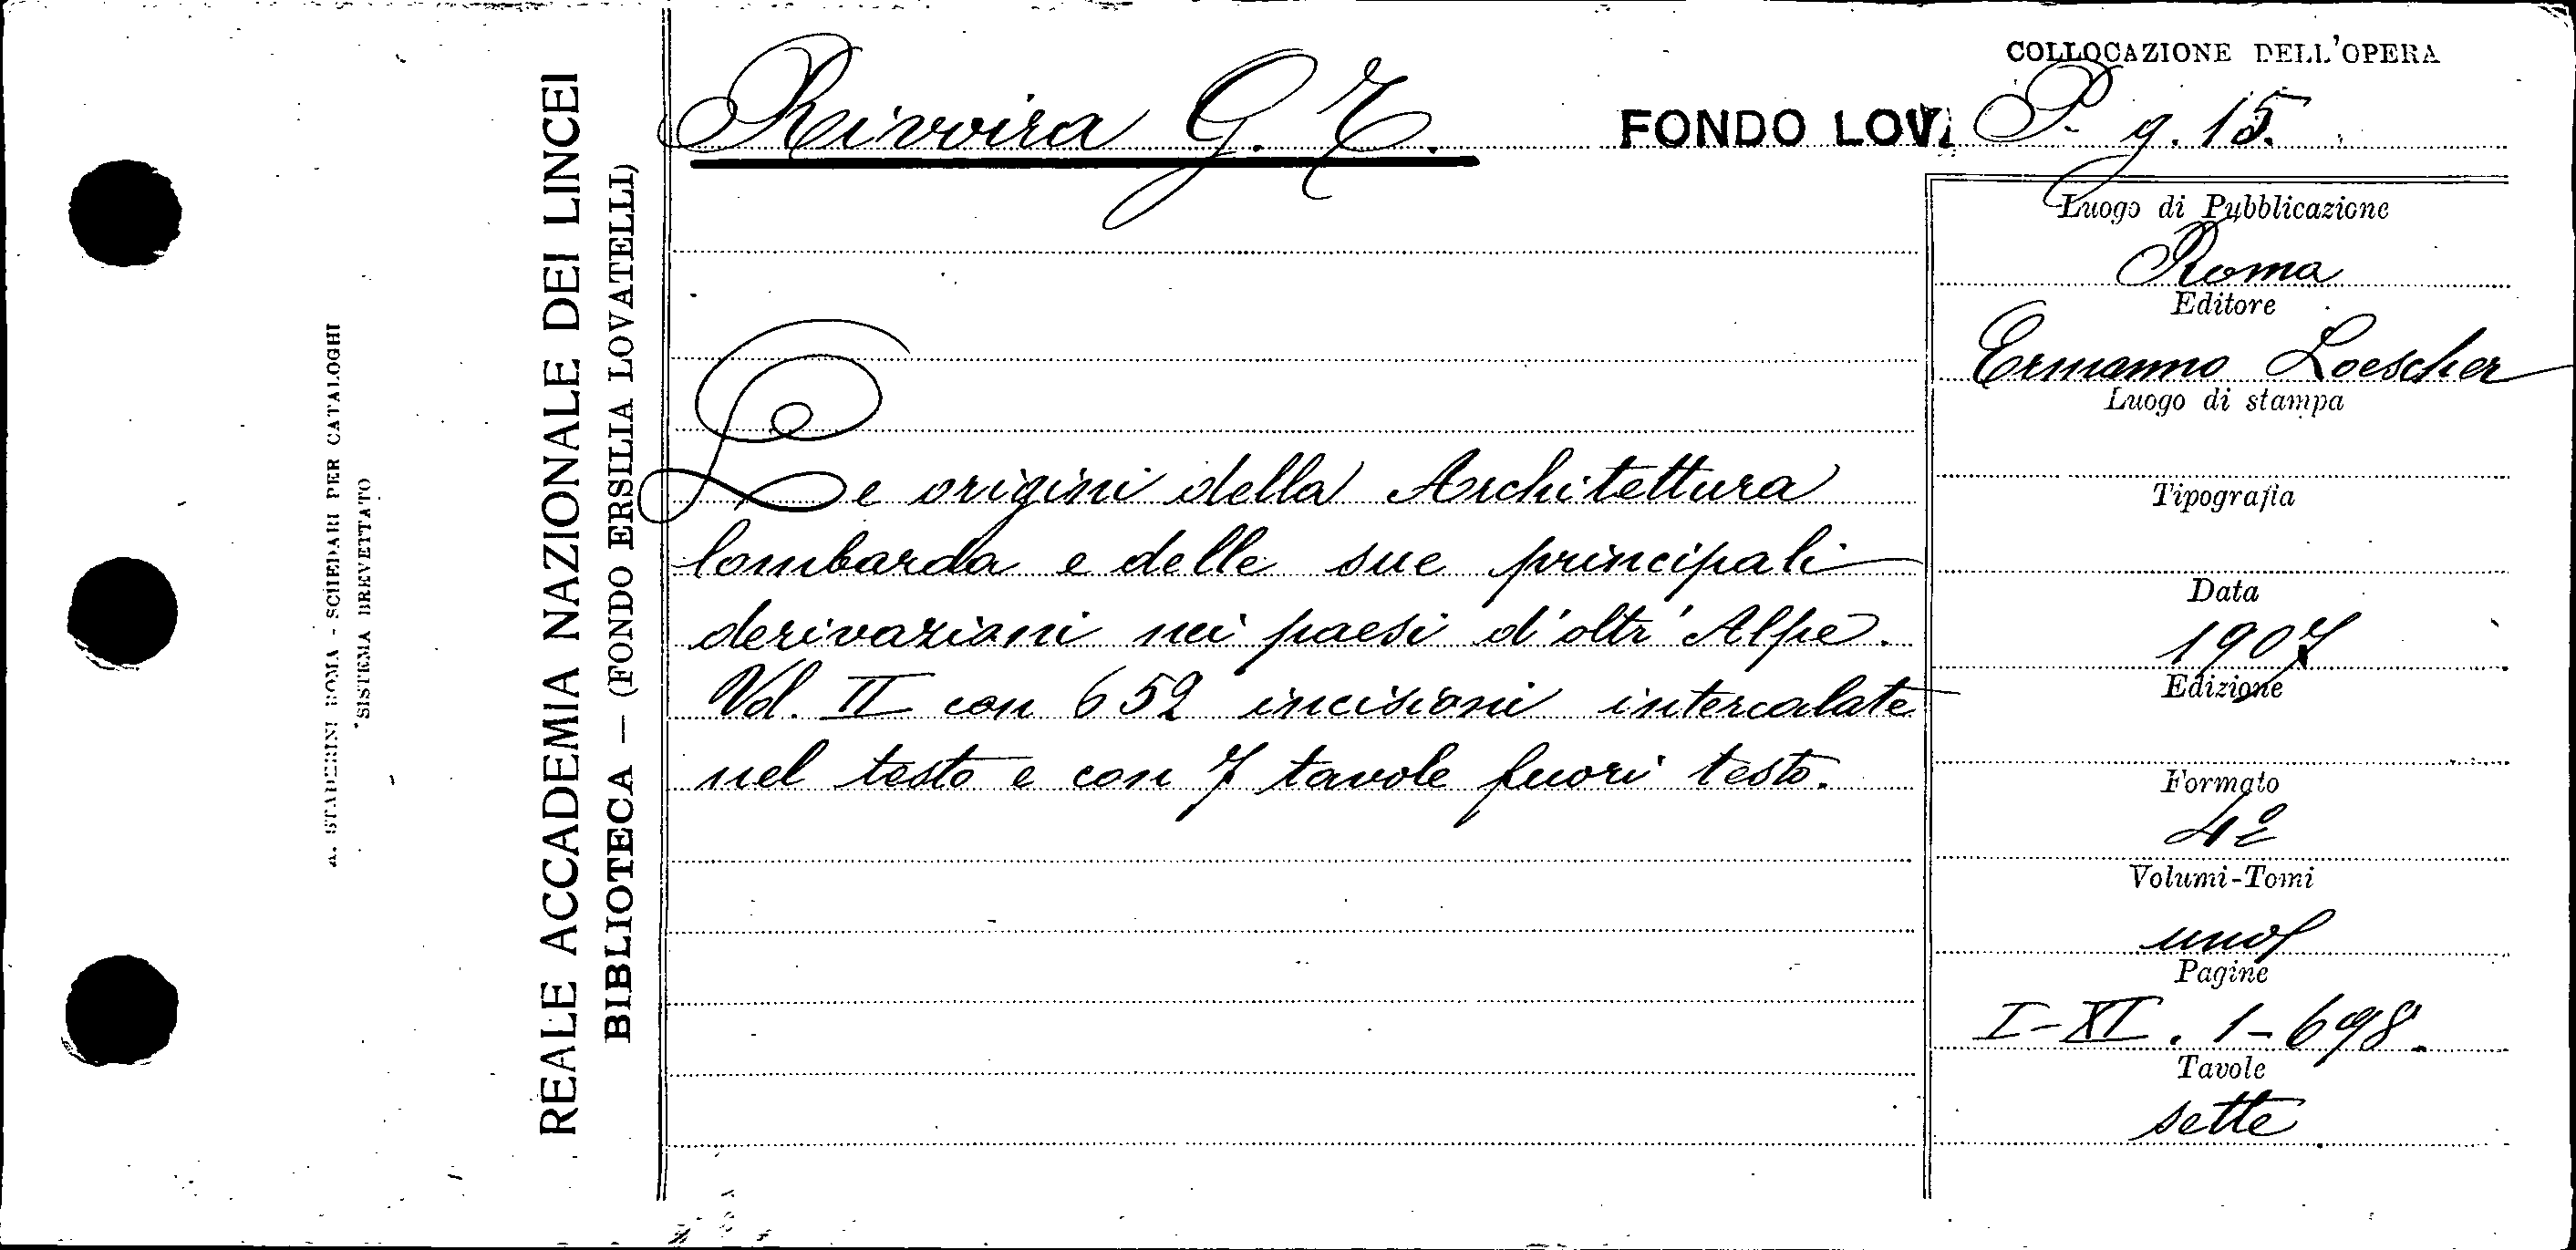 A. STADERINI ROMA - SCHEDARI PER CATALOGHI
SISTEMA BREVETTATO
REALE ACCADEMIA NAZIONALE DEI LINCEI
BIBLIOTECA — (FONDO ERSILIA LOVATELLI)
Rivoira G. T.
FONDO LOV.
Le origini della Architettura
lombarda e delle sue principali
derivazioni nei paesi d'oltr'Alpe.
Vol. II con 652 incisioni intercalate
nel testo e con 7 tavole fuori testo.
COLLOCAZIONE DELL'OPERA
P. g. 15.
Luogo di Pubblicazione
Roma
Editore
Ermanno Loescher
Luogo di stampa
Tipografia
Data
1907
Edizione
Formato
4º
Volumi-Tomi
uno
Pagine
I-XI. 1-698.
Tavole
sette